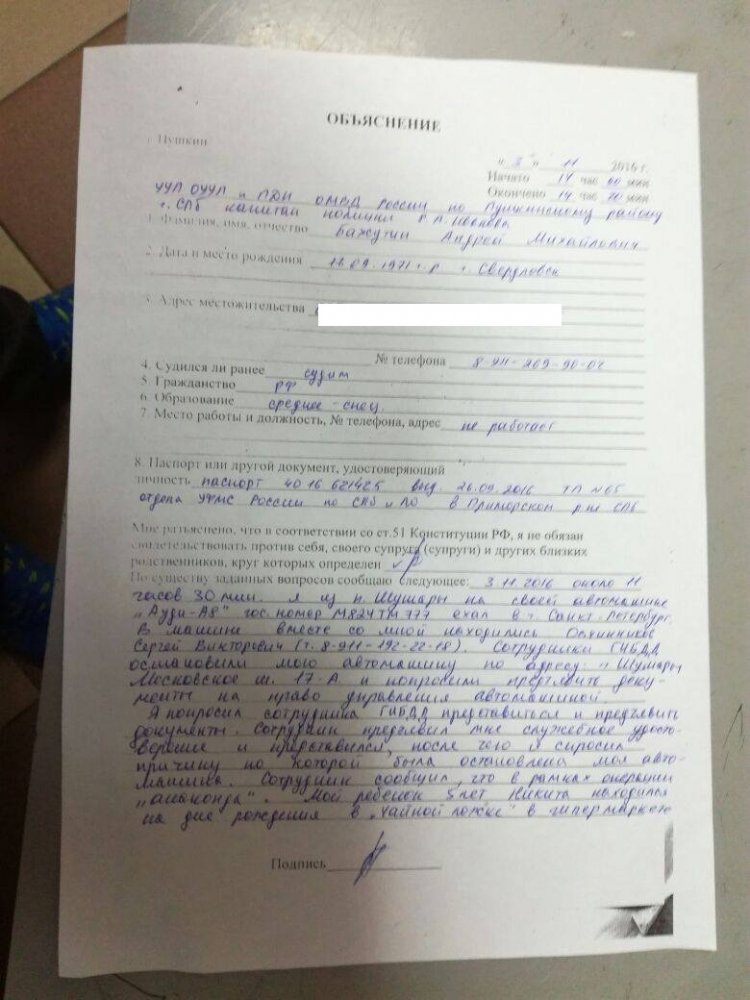 ОБЪЯСНЕНИЕ
Пушкин
"3" 11 2016 г.
Начато 14 час 00 мин
Окончено 14 час 20 мин
УУП ОУУП и ПДН ОМВД России по Пушкинскому району
г. СПб капитан полиции
1. Фамилия, имя, отчество Андрей Михайлович
2. Дата и место рождения 16.09.1971 г.р. г. Свердловск
3. Адрес местожительства
№ телефона 8-911-269-90-07
4. Судился ли ранее судим
5. Гражданство РФ
6. Образование среднее-спец.
7. Место работы и должность, № телефона, адрес не работает
8. Паспорт или другой документ, удостоверяющий
личность паспорт 40 16 621425 выд. 26.09.2016 ТП №65
отдела УФМС России по СПб и ЛО в Приморском р-не СПб
Мне разъяснено, что в соответствии со ст.51 Конституции РФ, я не обязан
свидетельствовать против себя, своего супруга (супруги) и других близких
родственников, круг которых определен
По существу заданных вопросов сообщаю следующее: 3.11.2016 около 11
часов 30 мин. я из п. Шушары на своей автомашине
"Ауди-А8" гос. номер М824ТМ777 ехал в г. Санкт-Петербург.
В машине вместе со мной находились
Сергей Викторович (т. 8-911-192-22-18). Сотрудники ГИБДД
остановили мою автомашину по адресу: п. Шушары
Московское ш. 17-А и попросили предъявить доку-
менты на право управления автомашиной.
Я попросил сотрудника ГИБДД представиться и предъявить
документы. Сотрудник предъявил мне служебное удосто-
верение и представился, после чего я спросил
причину по которой была остановлена моя авто-
машина. Сотрудник сообщил, что в рамках операции
"анаконда". Мой ребенок 5 лет Никита находился
на дне рождения в "Чайной ложке" в гипермаркете
Подпись